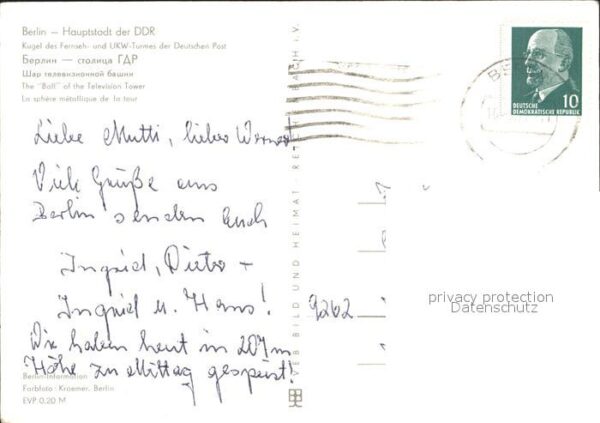 Berlin — Hauptstadt der DDR
Kugel des Fernseh- und UKW-Turmes der Deutschen Post
Берлин — столица ГДР
Шар телевизионной башни
The "Ball" of the Television Tower
La sphère métallique de la tour
Liebe Mutti, lieber Werner!
Viele Grüße aus
Berlin senden Euch
Ingrid, Dieter -
Ingrid u. Hans!
Wir haben heut in 207m
Höhe zu Mittag gespeist!
Berlin-Information
Farbfoto: Kraemer, Berlin
EVP 0,20 M
VEB BILD UND HEIMAT REICHENBACH i. V.
DEUTSCHE
DEMOKRATISCHE REPUBLIK
10
9262
privacy protection
Datenschutz